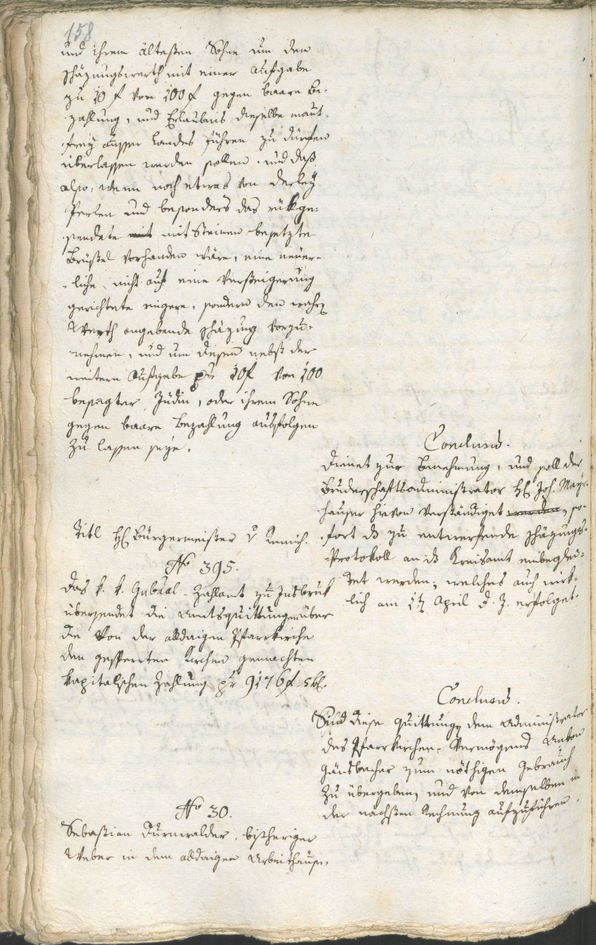 158
und ihrem ältesten Sohne um den
Schäzungswerth mit einer Aufgabe
zu 10 f von 100 f gegen baare Be-
zahlung, und Erlaubnis dieselbe maut-
frey ausser Landes führen zu dürfen
überlassen werden sollen, und daß
also, wenn noch etwas von derley
Perlen und besonders das
mit Steinen besetzte
Brüstel vorhanden wäre, eine neuer-
liche, nicht auf eine Versteigerung
gerichtete, sondern den wahren
Werth angebende Schäzung vorzu-
nehmen, und um diesen nebst der
weitern Aufgabe pr 10 f von 100
besagter Jüdin, oder ihrem Sohne
gegen baare Bezahlung ausfolgen
zu lassen seye.
Conclusum.
Dienet zur Benehmung, und soll der
Bruderschaftsadministrator H. Joh. Mayr-
hauser hievon verständiget, so-
fort das zu entwerfende Schäzungs-
Protokoll an das Kreisamt einbeglei-
tet werden; welches auch wirk-
lich am 17 April d. J. erfolget.
Titl H. Bürgermeister
No 395.
Das k. k. Gubral-Zahlamt zu Insbruk
übersendet die Amtsquittungen über
die von der alldaigen Pfarrkirche
den gesperrten Kirchen gemachten
Kapitalschen Zahlung pr 9176 f 5 kr.
Conclusum.
Sind diese Quittungen dem Administrator
des Pfarrkirchen-Vermögens Anton
Gänsbacher zum nöthigen Gebrauch
zu übergeben, und von demselben in
der nächsten Rechnung aufzuführen.
No 30.
Sebastian Durnwalder, bisheriger
Weber in dem alldaigen Arbeithause,